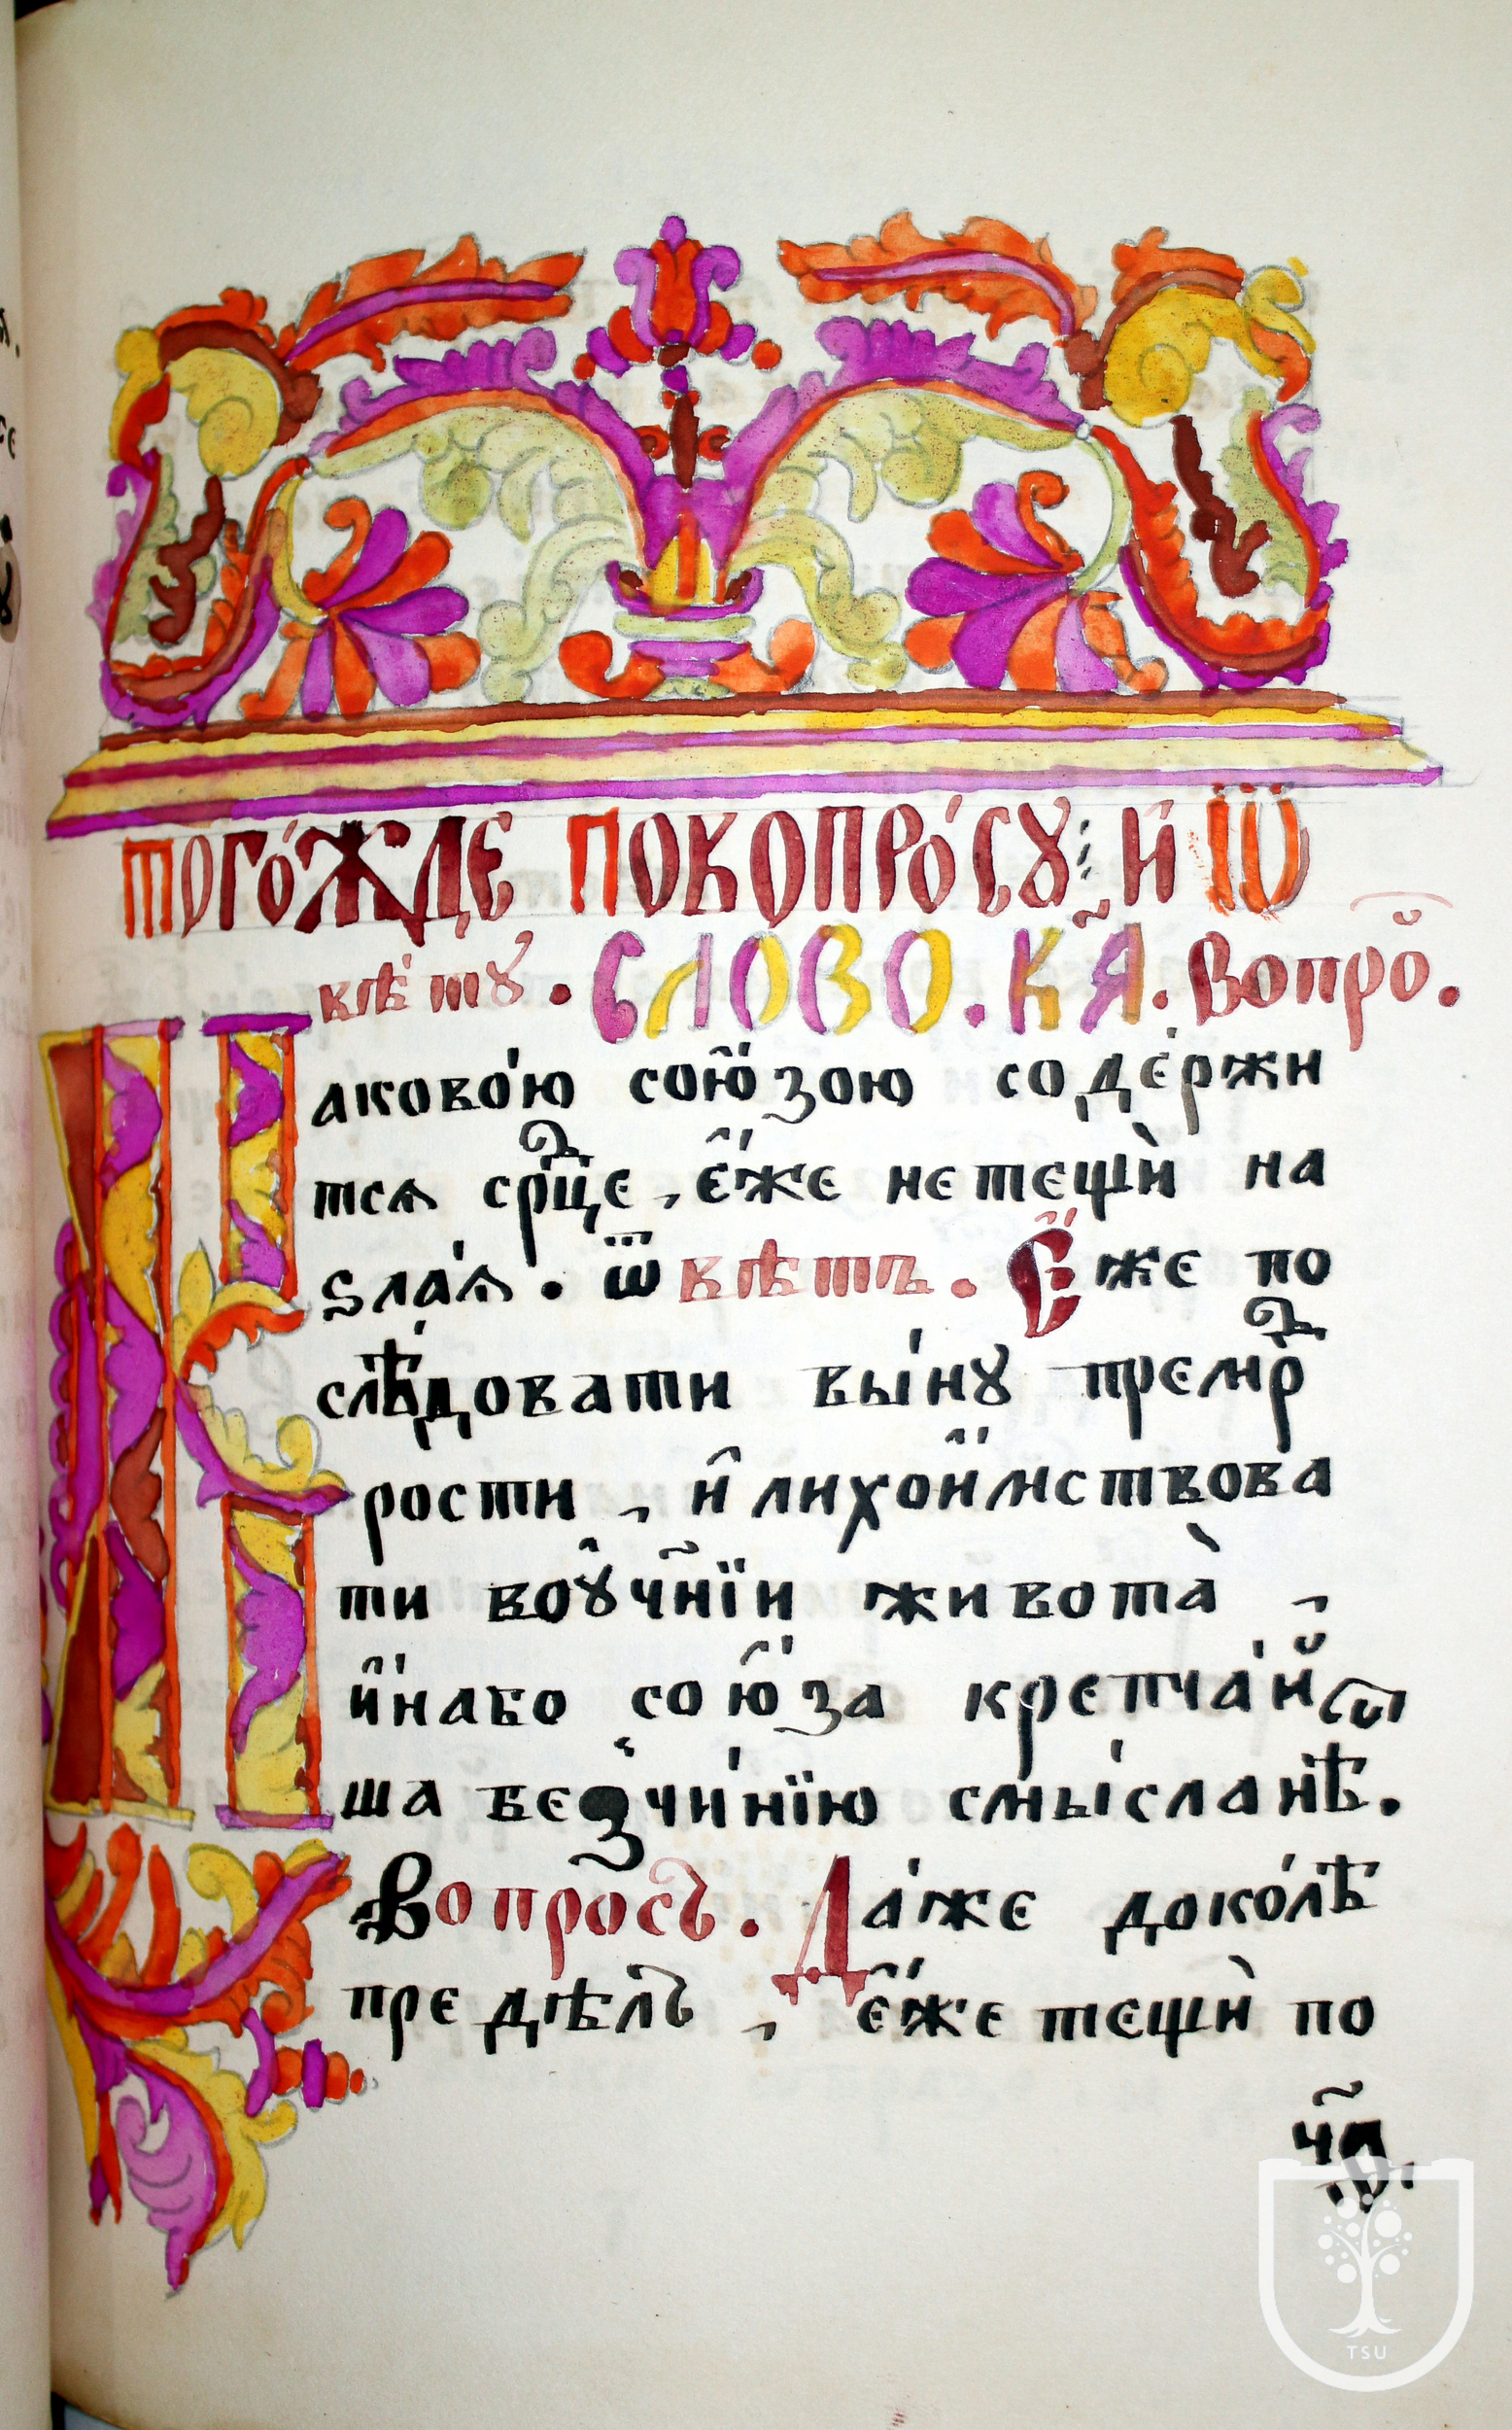 тогѡ́жде повопро́су: и҆ ѿ
вѣ́ту. Слово. к҃а. Вопро̑.
Каково́ю сою҆́зою соде́ржи
тсѧ срⷣце, є҆́же не тещѝ на
ѕла́ѧ. ѿвѣтъ. Є҆́же по
слѣ́довати вы́ну премрⷣ
рости, и҆ лихои҆́мствова
ти воꙋ҆ч҃нїи живота̀,
и҆́набо сою҆́за крепча́й
ша безчи́нїю смы́сланѣ.
Вопросъ. Да́же доко́лѣ
предѣлъ, є҆́же тещѝ по
TSU